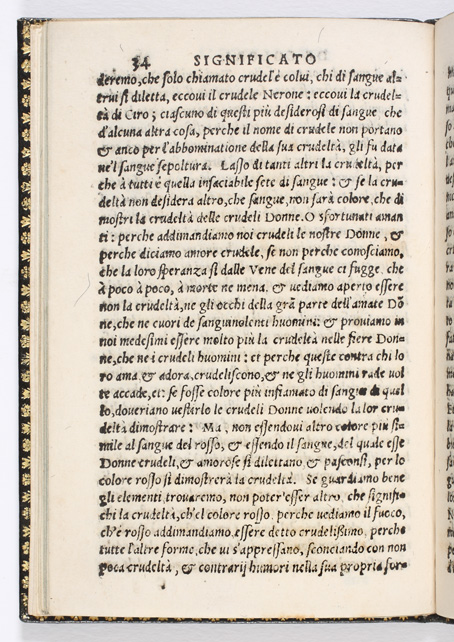 34 SIGNIFICATO
deremo, che solo chiamato crudel'è colui, chi di sangue al-
trui si diletta, eccoui il crudele Nerone: eccoui la crudel-
tà di Ciro; ciascuno di questi più desiderosi di sangue che
d'alcuna altra cosa, perche il nome di crudele non portano
& anco per l'abbominatione della sua crudeltà, gli fu data
ne'l sangue sepoltura. Lasso di tanti altri la crudeltà, per
che à tutti è quella insaciabile sete di sangue: & se la cru-
deltà non desidera altro, che sangue, non sarà colore, che di
mostri la crudeltà delle crudeli Donne. O sfortunati aman
ti: perche addimandiamo noi crudeli le nostre Donne, &
perche diciamo amore crudele, se non perche conosciamo,
che la loro speranza si dalle Vene del sangue ci fugge, che
à poco à poco, à morte ne mena. & uediamo aperto essere
non la crudeltà, ne gli occhi della grã parte dell'amate Dõ
ne, che ne cuori de sanguinolenti huomini: & prouiamo in
noi medesimi essere molto più la crudeltà nelle fiere Don-
ne, che ne i crudeli huomini: et perche queste contra chi lo
ro ama, & adora, crudeliscono, & ne gli huomini rade uol
te accade, et: se fosse colore più infiamato di sangue di qual
lo, doueriano uestirlo le crudeli Donne uolendo la lor cru-
deltà dimostrare: Ma, non essendoui altro colore più si-
mile al sangue del rosso, & essendo il sangue, del quale esse
Donne crudeli, & amorose si dilettano, & pasconsi, per lo
colore rosso si dimostrerà la crudeltà. Se guardiamo bene
gli elementi, trouaremo, non poter'esser altro, che signifi-
chi la crudeltà, ch'el colore rosso, perche uediamo il fuoco,
ch'è rosso addimandiamo, essere detto crudelißimo, perche
tutte l'altre forme, che ui s'appressano, sconciando con non
poca crudeltà, & contrarij humori nella sua propria for-